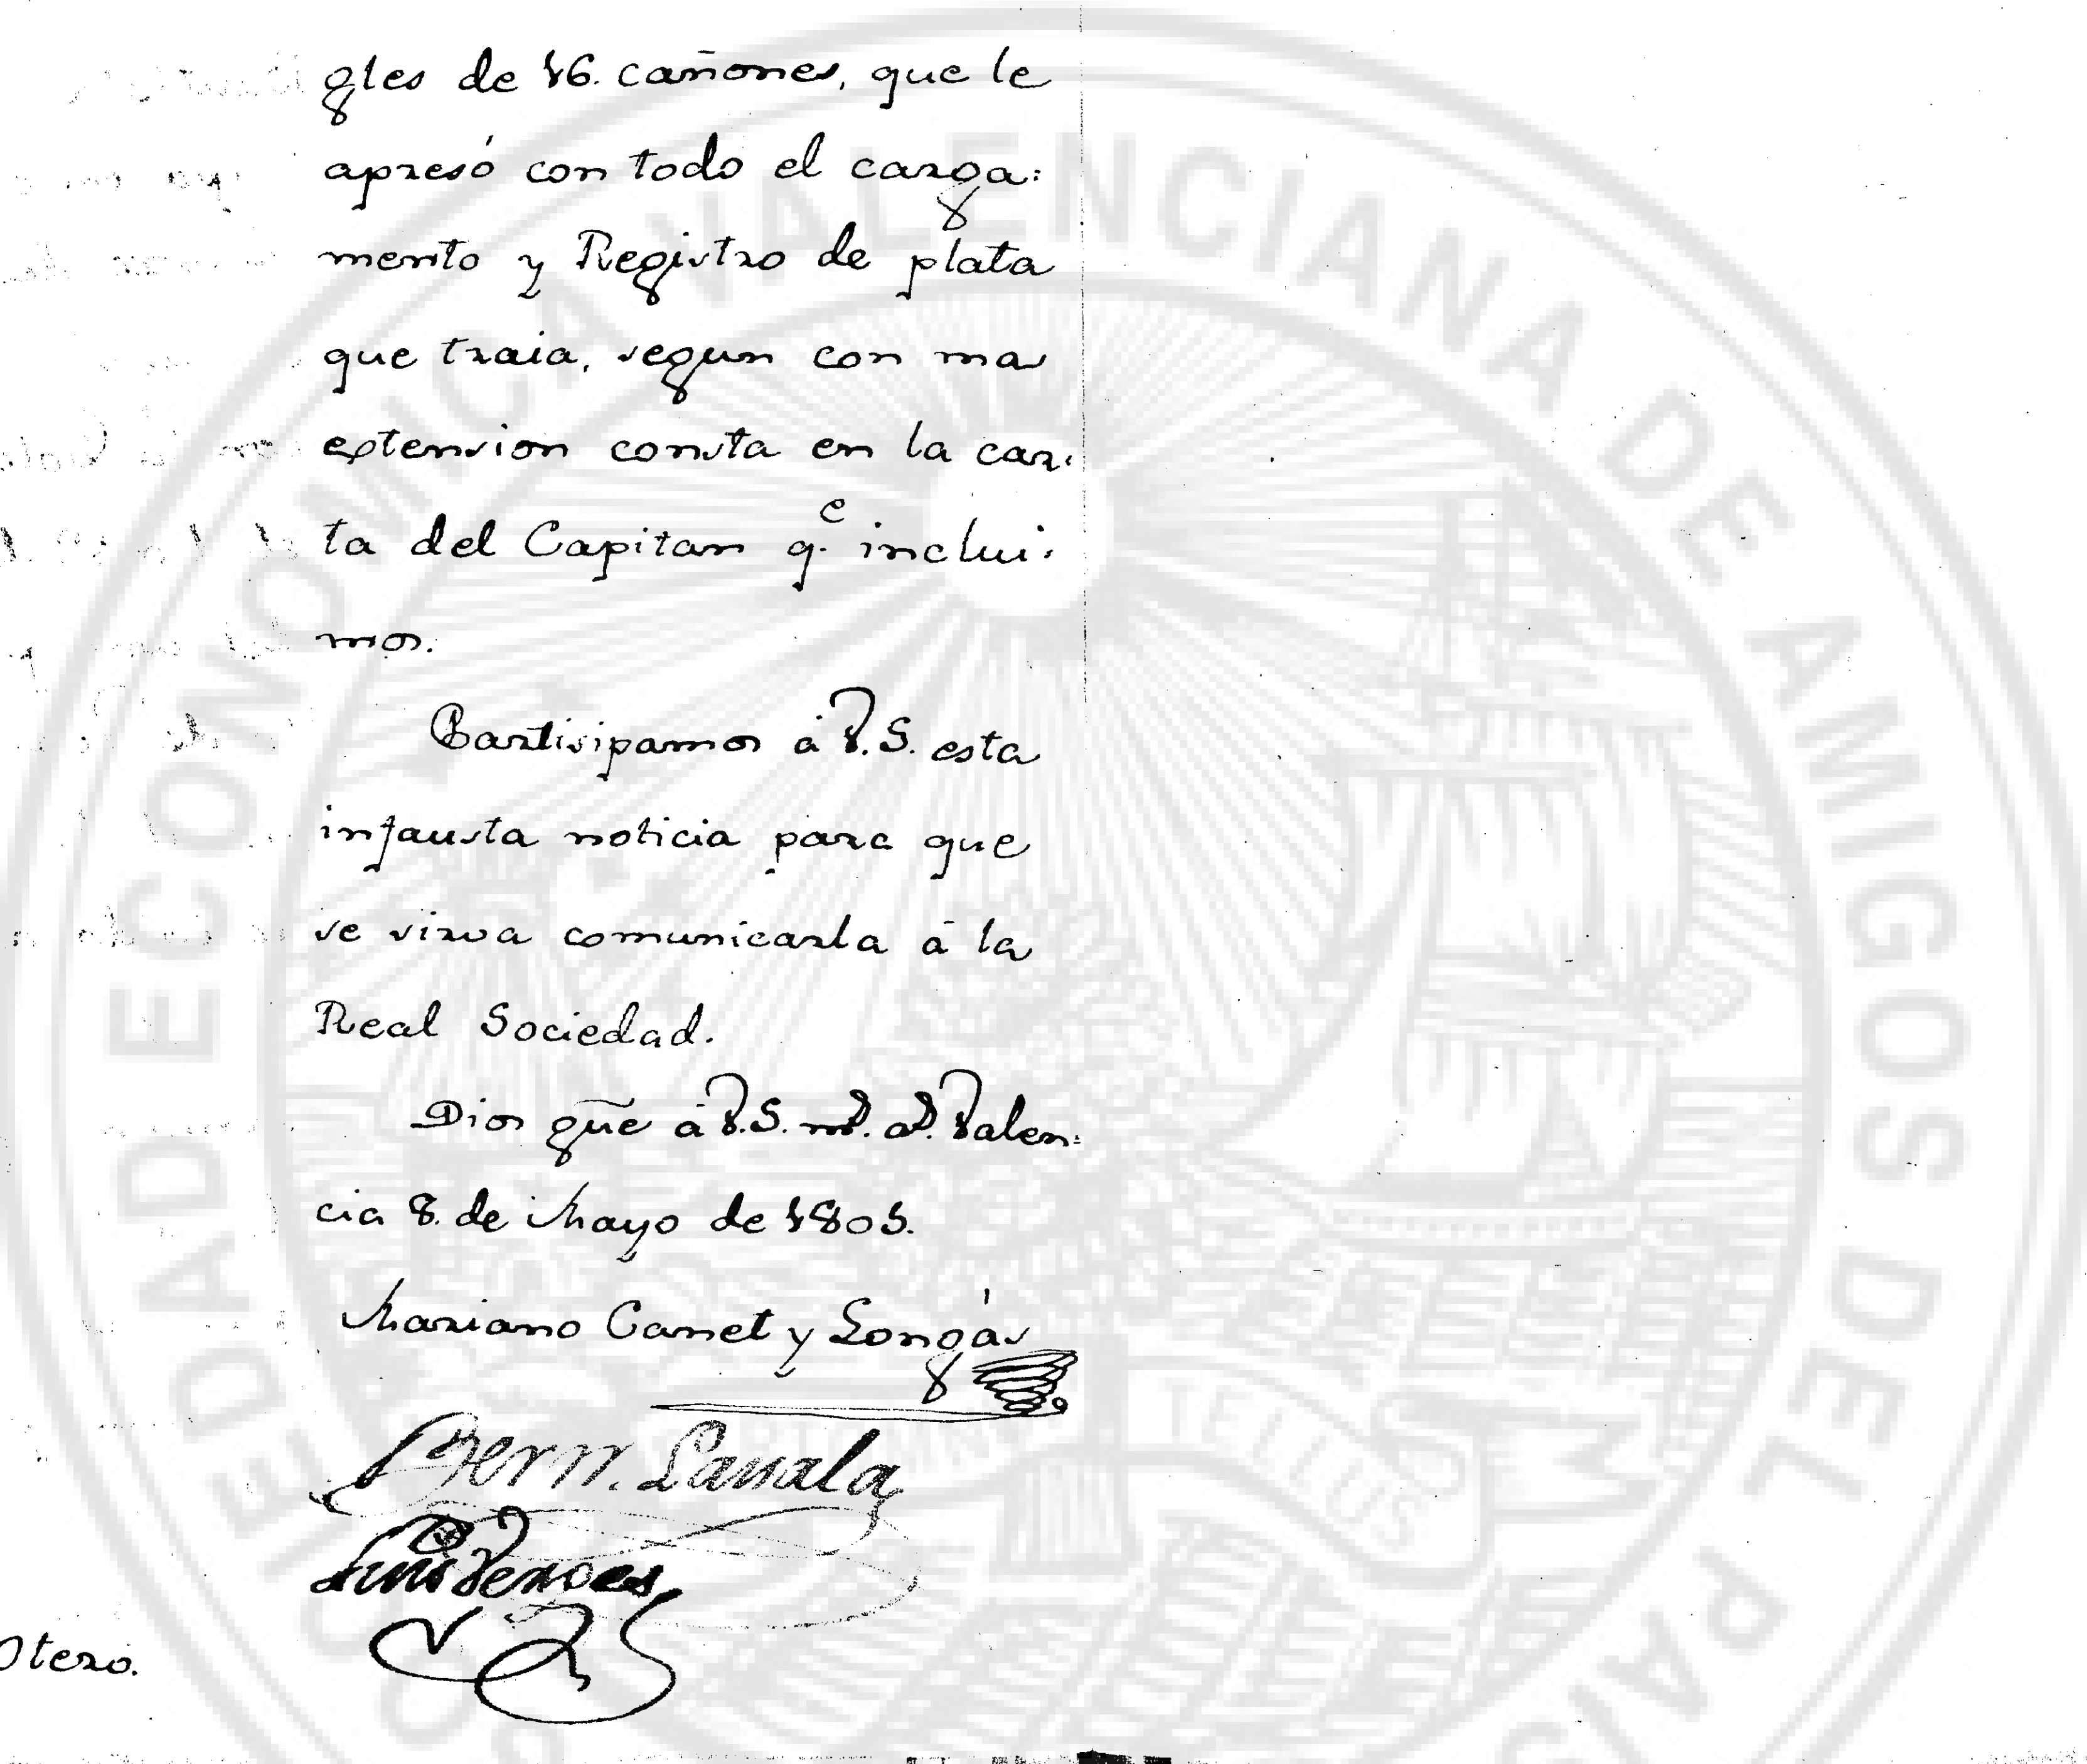 gles de 16. cañones, que le
apresó con todo el carga=
mento y Registro de plata
que traia, segun con mas
extension consta en la car=
ta del Capitan q.e inclui=
mos.
Partisipamos á V.S. esta
infausta noticia para que
se sirva comunicarla á la
Real Sociedad.
Dios gūe á V.S. m.s a.s Valen=
cia 8. de Mayo de 1805.
Mariano Canet y Longás
Bern. Lassala
Luis Perxoes
Otero.
SOCIEDAD ECONOMICA VALENCIANA DE AMIGOS DEL PAIS